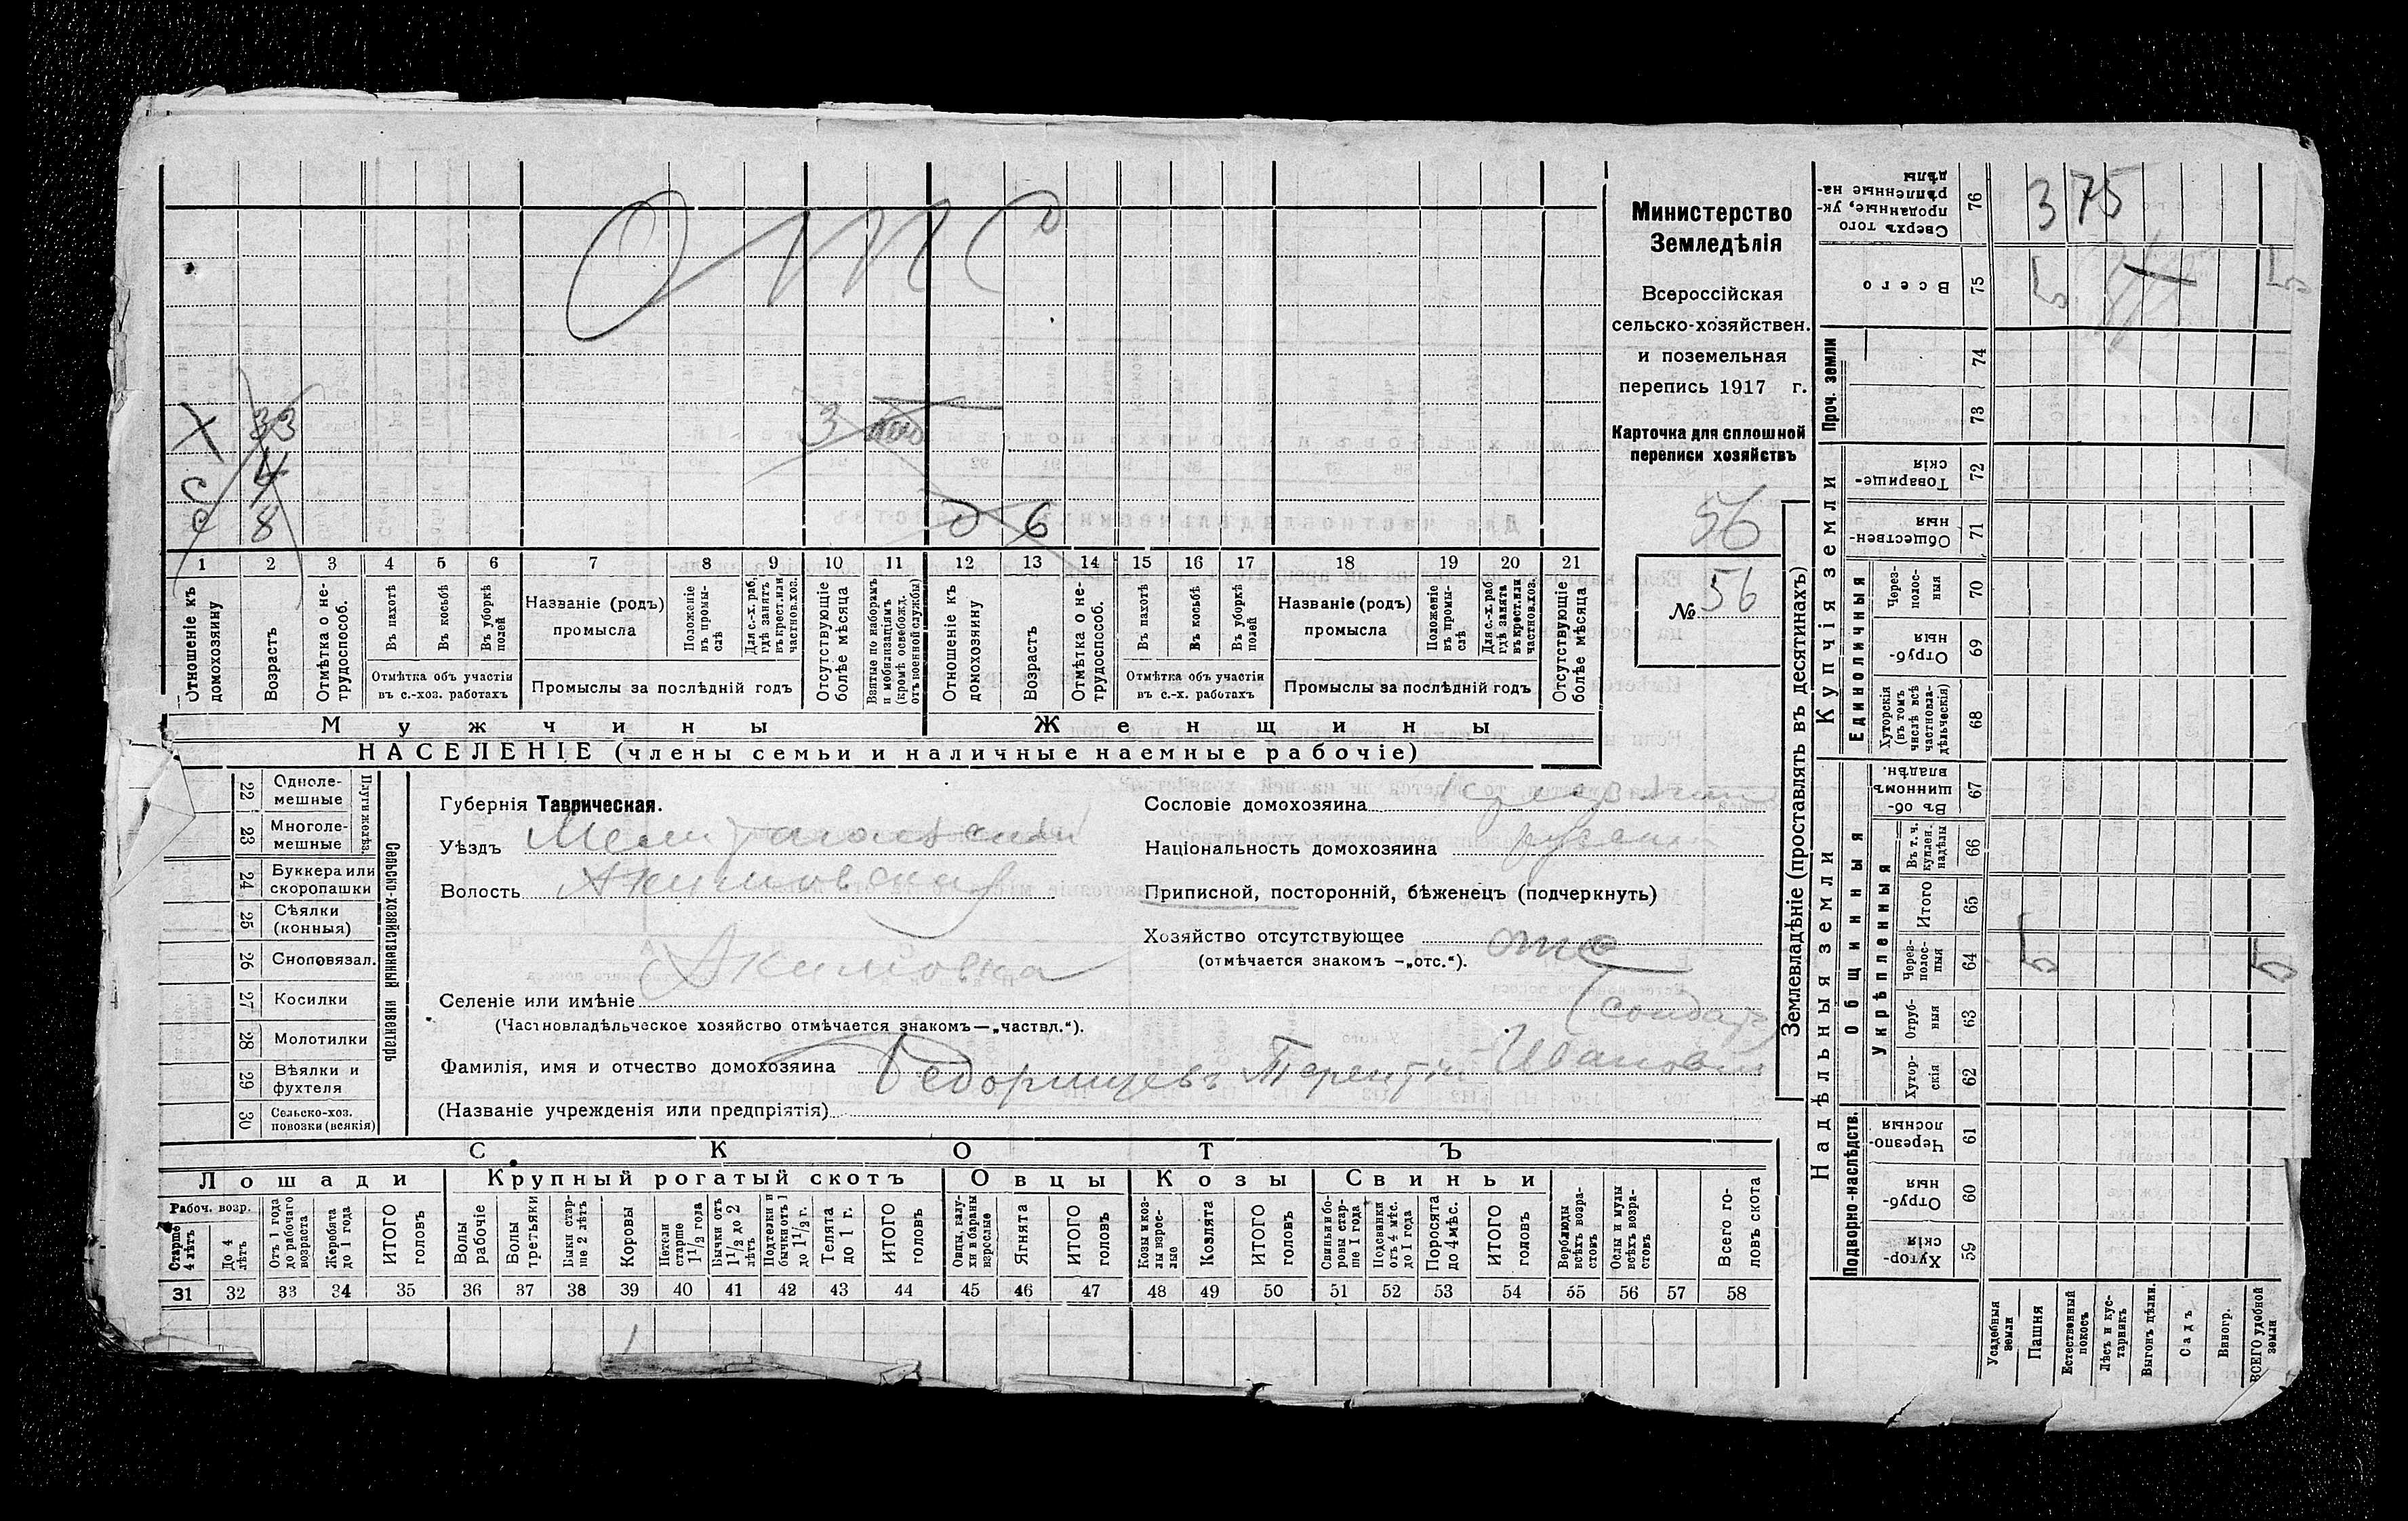 Отс
Х 33
с 4
с 8
3
д 6
1 2 3 4 5 6 7 8 9 10 11 12 13 14 15 16 17 18 19 20 21
Отношеніе къ домохозяину
Возрастъ
Отмѣтка о не-трудоспособ.
Въ пахотѣ
Въ косьбѣ
Въ уборкѣ полей
Отмѣтка объ участіи
въ с.-хоз. работахъ
Названіе (родъ)
промысла
Положеніе въ промы-слѣ
Для с.-х. раб. гдѣ занятъ въ крест. или частнов. хоз.
Промыслы за послѣдній годъ
Отсутствующіе болѣе мѣсяца
Взятые по наборамъ и мобилизаціямъ (кромѣ освобожд. отъ военной службы)
Отношеніе къ домохозяину
Возрастъ
Отмѣтка о не-трудоспособ.
Въ пахотѣ
Въ косьбѣ
Въ уборкѣ полей
Отмѣтка объ участіи
въ с.-х. работахъ
Названіе (родъ)
промысла
Положеніе въ промы-слѣ
Для с.-х. раб. гдѣ занята въ крест. или частнов. хоз.
Промыслы за послѣдній годъ
Отсутствующіе болѣе мѣсяца
Мужчины
Женщины
НАСЕЛЕНІЕ (члены семьи и наличные наемные рабочіе)
Министерство
Земледѣлія
Всероссійская
сельско-хозяйствен.
и поземельная
перепись 1917 г.
Карточка для сплошной
переписи хозяйствъ
56
№ 56
22 Одноле-мешные
23 Многоле-мешные
Плуги желѣз.
24 Буккера или скоропашки
25 Сѣялки (конныя)
26 Сноповязал.
27 Косилки
28 Молотилки
29 Вѣялки и фухтеля
30 Сельско-хоз. повозки (всякія)
Сельско-хозяйственный инвентарь
Губернія Таврическая.
Уѣздъ Мелитопольскій
Волость Акимовская
Селеніе или имѣніе Акимовка
(Частновладѣльческое хозяйство отмѣчается знакомъ—„частвл.“).
Сословіе домохозяина
Національность домохозяина
Приписной, посторонній, бѣженецъ (подчеркнуть)
Хозяйство отсутствующее отс
(отмѣчается знакомъ —„отс.“).
(солдат)
Фамилія, имя и отчество домохозяина Терентій Иванович
(Названіе учрежденія или предпріятія)
СКОТЪ
Лошади
Крупный рогатый скотъ
Овцы
Козы
Свиньи
Рабоч. возр.
Старше 4 лѣтъ
До 4 лѣтъ
Отъ 1 года до рабочаго возраста
Жеребята до 1 года
ИТОГО головъ
Волы рабочіе
Волы третьяки
Быки стар-ше 2 лѣтъ
Коровы
Нетели старше 1 1/2 года
Бычки отъ 1 1/2 до 2 лѣтъ
Подтелки и бычки отъ 1 до 1 1/2 г.
Телята до 1 г.
ИТОГО головъ
Овцы, валу-хи и бараны взрослые
Ягнята
ИТОГО головъ
Козы и коз-лы взрос-лые
Козлята
ИТОГО головъ
Свиньи и бо-ровы стар-ше 1 года
Подсвинки отъ 4 мѣс. до 1 года
Поросята до 4 мѣс.
ИТОГО головъ
Верблюды всѣхъ возра-стовъ
Ослы и мулы всѣхъ возра-стовъ
Всего го-ловъ скота
31 32 33 34 35 36 37 38 39 40 41 42 43 44 45 46 47 48 49 50 51 52 53 54 55 56 57 58
1
Землевладѣніе (проставлять въ десятинахъ)
Надѣльныя земли
Купчія земли
Проч. земли
Подворно-наслѣдств.
Общинныя
Укрѣпленныя
Единоличныя
76 Сверхъ того проданные, ук-рѣпленные на-дѣлы 375
75 Всего 5 5
74
73
72 Товарище-скія
71 Обществен-ныя
70 Через-полос-ныя
69 Отруб-ныя
68 Хуторскія (въ томъ числѣ всѣ частновла-дѣльческія)
67 Въ об-щинномъ владѣн.
66 Въ т. ч. куплен. надѣлы
65 Итого
64 Через-полос-ныя 5 5
63 Отруб-ныя
62 Хутор-скія
61 Черезпо-лосныя
60 Отруб-ныя
59 Хутор-скія
Усадебныя земли
Пашня
Естественный покосъ
Лѣсъ и кус-тарникъ
Выгонъ цѣлин.
Садъ
Виногр.
ВСЕГО удобной земли